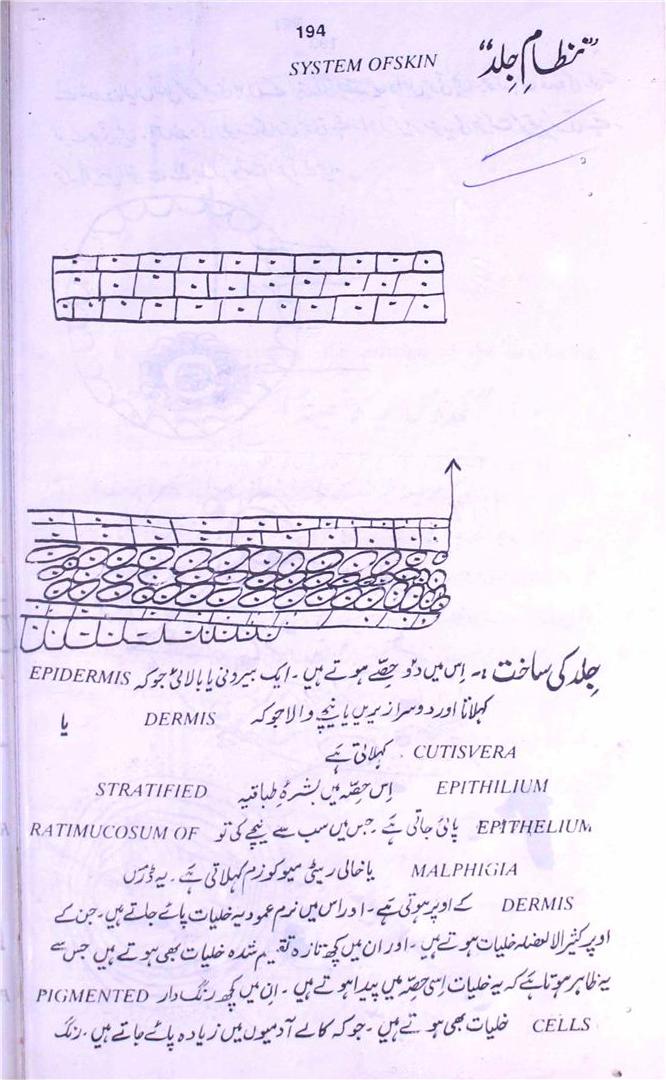 194
SYSTEM OFSKIN
”نظامِ جِلد“
جِلد کی ساخت :۔ اِس میں دو حِصّے ہوتے ہیں ۔ ایک بیرونی یا بالائی جوکہ EPIDERMIS
کہلاتا اور دوسرا زیریں یا نیچے والا جوکہ DERMIS یا
CUTISVERA کہلاتی ہے
EPITHILIUM اِس حِصّہ میں بشرۂ طباقیہ STRATIFIED
EPITHELIUM پائی جاتی ہے ۔ جس میں سب سے نیچے کی تو RATIMUCOSUM OF
MALPHIGIA یا خالی ریٹی میوکوزم کہلاتی ہے ۔ یہ ڈرمس
DERMIS کے اوپر ہوتی ہے ۔ اور اس میں نرم عمودیہ خلیات پائے جاتے ہیں ۔ جن کے
اوپر کثیر الاضلاع خلیات ہوتے ہیں ۔ اور ان میں کچھ تازہ تقسیم شدہ خلیات بھی ہوتے ہیں جس سے
یہ ظاہر ہوتا ہے کہ یہ خلیات اِسی حِصّہ میں پیدا ہوتے ہیں ۔ اِن میں کچھ رنگ دار PIGMENTED
CELLS خلیات بھی ہوتے ہیں ۔ جوکہ کالے آدمیوں میں زیادہ پائے جاتے ہیں ۔ رنگ